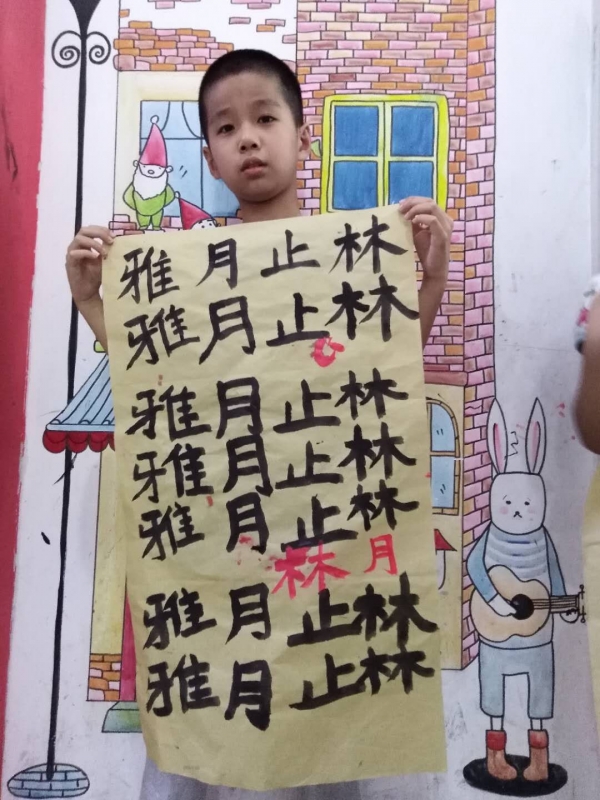 雅月止林
雅月止林
雅月止林
雅月止林
雅月止林
林月
雅月止林
雅月止林